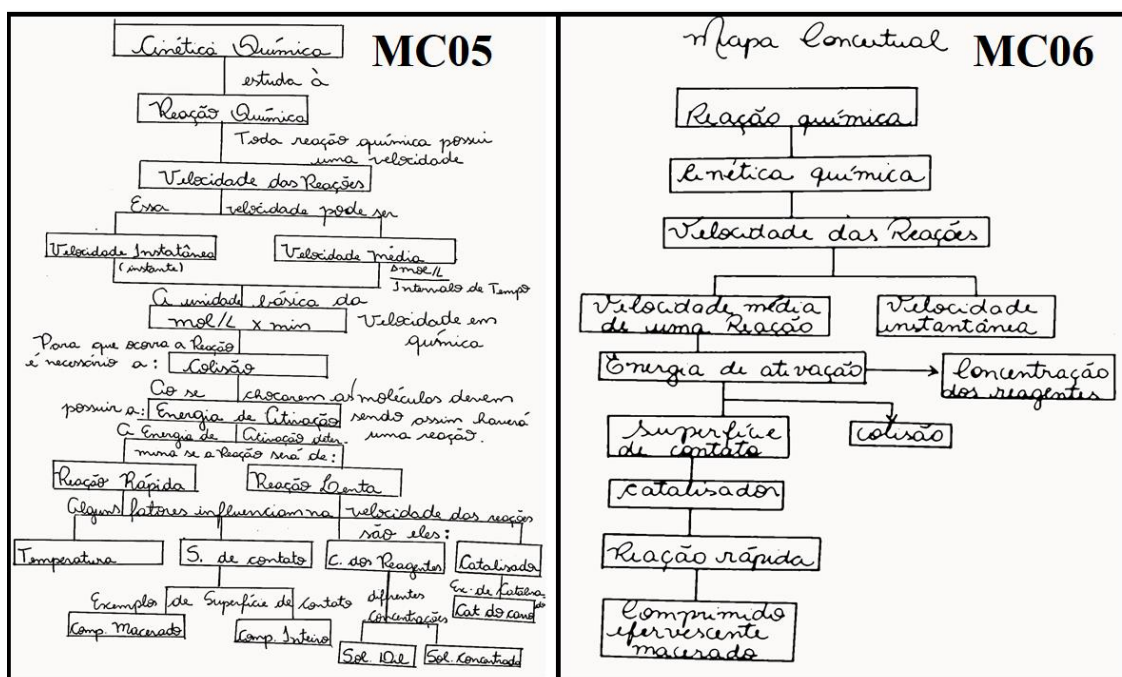 MC05
Cinética Química
estuda à
Reação Química
Toda reação química possui
uma velocidade
Velocidade das Reações
Essa velocidade pode ser
Velocidade Instatânea
(instante)
Velocidade média
Δmol/L
Intervalo de Tempo
A unidade básica da
mol/L x min
Velocidade em
química
Para que ocorra a Reação
é necessário a:
Colisão
Ao se chocarem as moléculas devem
possuir a:
Energia de Ativação
sendo assim haverá
uma reação.
A Energia de Ativação deter-
mina se a Reação será de:
Reação Rápida
Reação Lenta
Alguns fatores influenciam na velocidade das reações
são eles:
Temperatura
S. de contato
C. dos Reagentes
Catalisador
Exemplos de Superfície de contato
Comp. Macerado
Comp. Inteiro
difrentes
concentrações
Sol. Dil
Sol. Concentrada
Ex. de
Cat do carro
MC06
Mapa Conceitual
Reação química
Cinética química
Velocidade das Reações
Velocidade média
de uma Reação
Velocidade
instantânea
Energia de ativação
Concentração
dos reagentes
Superfície
de contato
colisão
catalisador
Reação rápida
Comprimido
efervescente
macerado